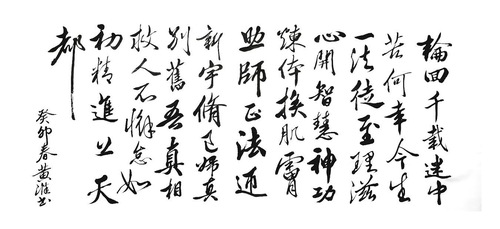 輪回千載迷中
苦何幸今生
一法徒至理滋
心開智慧神功
煉体換肌膚
助師正法迎
新宇脩己歸真
別舊吾真相
救人不懈怠如
初精進上天
都
癸卯春黄淮书